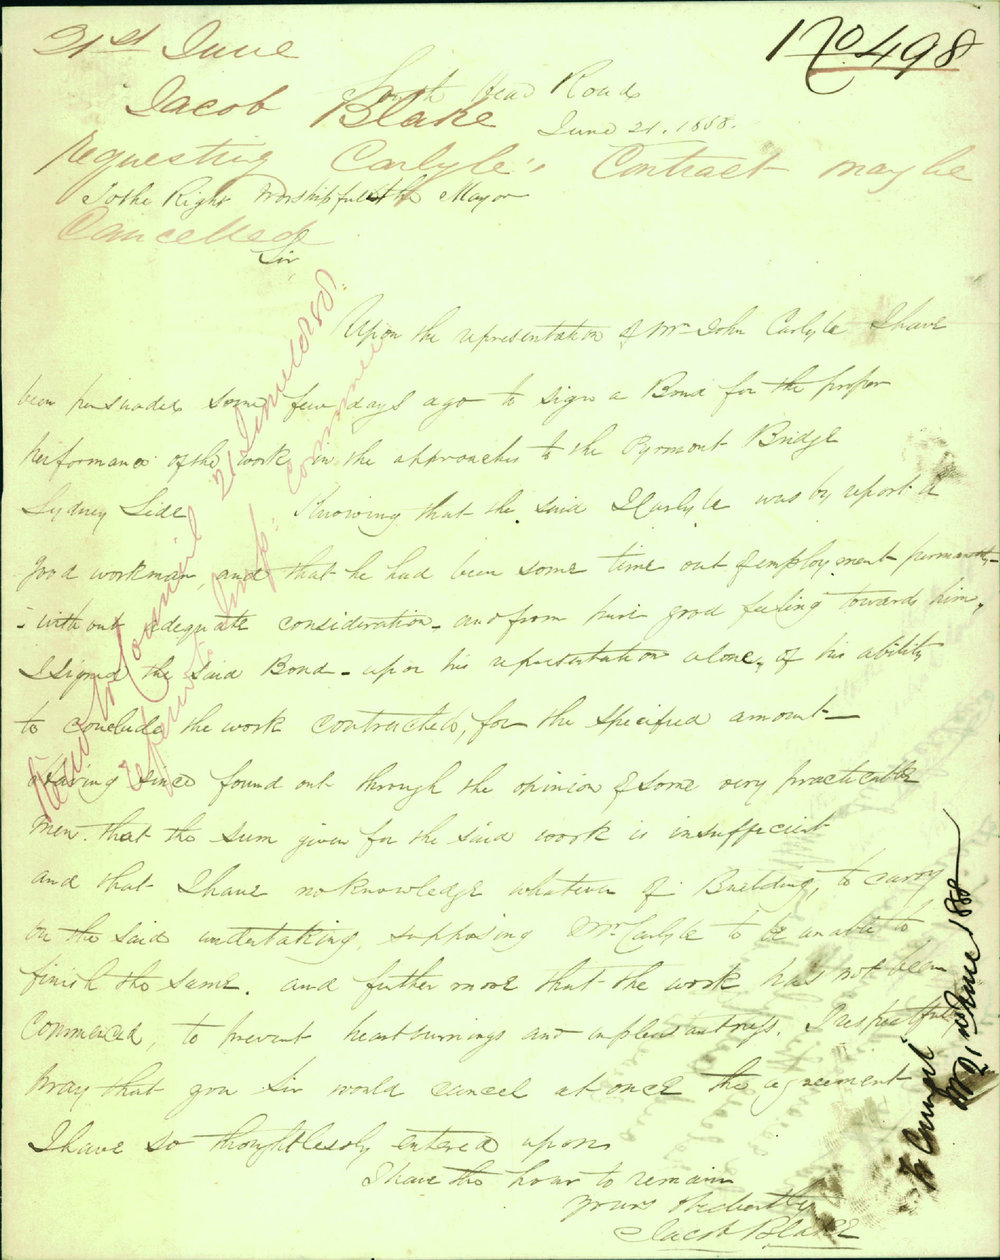 No 498
21st June
Jacob Blake
requesting Carlyle's Contract may be
Cancelled
South Head Road
June 21. 1858.
To the Right Worshipful the Mayor
Sir
Upon the representation of Mr John Carlyle I have
been persuaded some few days ago to sign a Bond for the proper
performance of the work in the approaches to the Pyrmont Bridge
Sydney Side Knowing that the said J Carlyle was by report a
good workman, and that he had been some time out of employment permanent,
- without adequate consideration - and from pure good feeling towards him,
I signed the said Bond - upon his representation alone, of his ability
to conclude the work contracted, for the specified amount -
Having since found out through the opinion of some very practicable
men that the sum given for the said work is insufficient
and that I have no knowledge whatever of Building, to carry
on the said undertaking, supposing Mr Carlyle to be unable to
finish the same. and further more that the work has not been
Commenced, to prevent heartburnings and unpleasantness. I respectfully
pray that you Sir would cancel at once the agreement
I have so thoughtlessly entered upon
I have the honor to remain
Yours Obediently
Jacob Blake
Read in Council 21 June 1858.
referred to Imp. Committee
To Council
21 June 1858